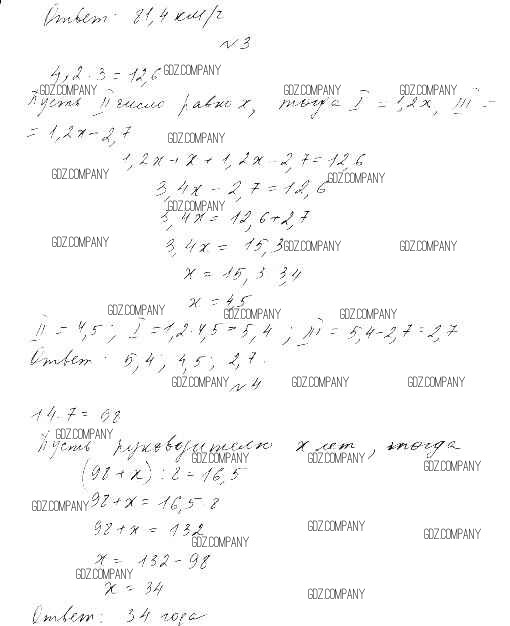 Ответ: 81,4 км/ч
№3
4,2 · 3 = 12,6 GDZ.COMPANY
GDZ.COMPANY GDZ.COMPANY GDZ.COMPANY
Пусть II число равно x, тогда I = 1,2x, III =
= 1,2x - 2,7 GDZ.COMPANY
1,2x + x + 1,2x - 2,7 = 12,6
GDZ.COMPANY GDZ.COMPANY
3,4x - 2,7 = 12,6
GDZ.COMPANY
3,4x = 12,6 + 2,7
GDZ.COMPANY 3,4x = 15,3 GDZ.COMPANY GDZ.COMPANY
x = 15,3 : 3,4
x = 4,5
GDZ.COMPANY GDZ.COMPANY GDZ.COMPANY
II = 4,5; I = 1,2 · 4,5 = 5,4; III = 5,4 - 2,7 = 2,7
Ответ: 5,4; 4,5; 2,7.
GDZ.COMPANY №4 GDZ.COMPANY GDZ.COMPANY
14 · 7 = 98
GDZ.COMPANY
Пусть руководителю x лет, тогда
GDZ.COMPANY GDZ.COMPANY GDZ.COMPANY
(98 + x) : 8 = 16,5
GDZ.COMPANY 98 + x = 16,5 · 8
98 + x = 132 GDZ.COMPANY GDZ.COMPANY
GDZ.COMPANY
x = 132 - 98
GDZ.COMPANY
x = 34 GDZ.COMPANY
Ответ: 34 года